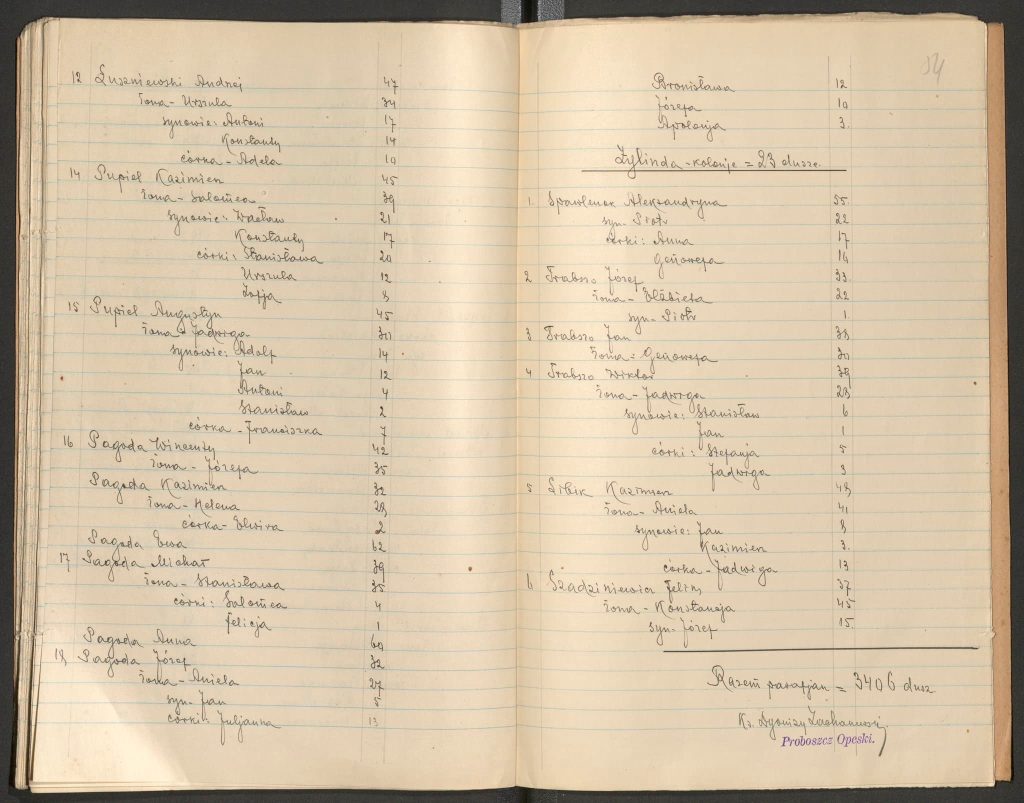 12 Łuszniewski Andrzej 47
żona - Urszula 34
synowie: Antoni 17
Konstanty 14
córka - Adela 10
14 Pupiel Kazimierz 45
żona - Salomea 39
synowie: Wacław 21
Konstanty 17
córki: Stanisława 20
Urszula 12
Zofja 8
15 Pupiel Augustyn 45
żona - Jadwiga 30
synowie: Adolf 14
Jan 12
Antoni 4
Stanisław 2
córka - Franciszka 7
16 Pagoda Wincenty 42
żona - Józefa 35
Pagoda Kazimierz 32
żona - Helena 28
córka - Elwira 2
Pagoda Ewa 62
17 Pagoda Michał 39
żona - Stanisława 35
córki: Salomea 4
Felicja 1
Pagoda Anna 60
18 Pagoda Józef 32
żona - Aniela 27
syn - Jan 5
córki: Juljanna 13
54
Bronisława 12
Józefa 10
Apolonja 3.
Żylinda - kolonje = 23 dusze.
1. Spawlenok Aleksandryna 55
syn - Piotr 22
córki: Anna 17
Genowefa 16
2 Trabszo Józef 33
żona - Elżbieta 22
syn - Piotr 1
3 Trabszo Jan 38
żona = Genowefa 30
4 Trabszo Wiktor 39
żona - Jadwiga 28
synowie: Stanisław 6
Jan 1
córki: Stefanja 5
Jadwiga 3
5 Kazimierz 48
żona - Aniela 41
synowie: Jan 8
Kazimierz 3.
córka - Jadwiga 13
6 Szadziniewicz Felix 37
żona - Konstancja 45
syn - Józef 15
Razem parafjan = 3406 dusz
Ks. Dyonizy
Proboszcz Opeski.